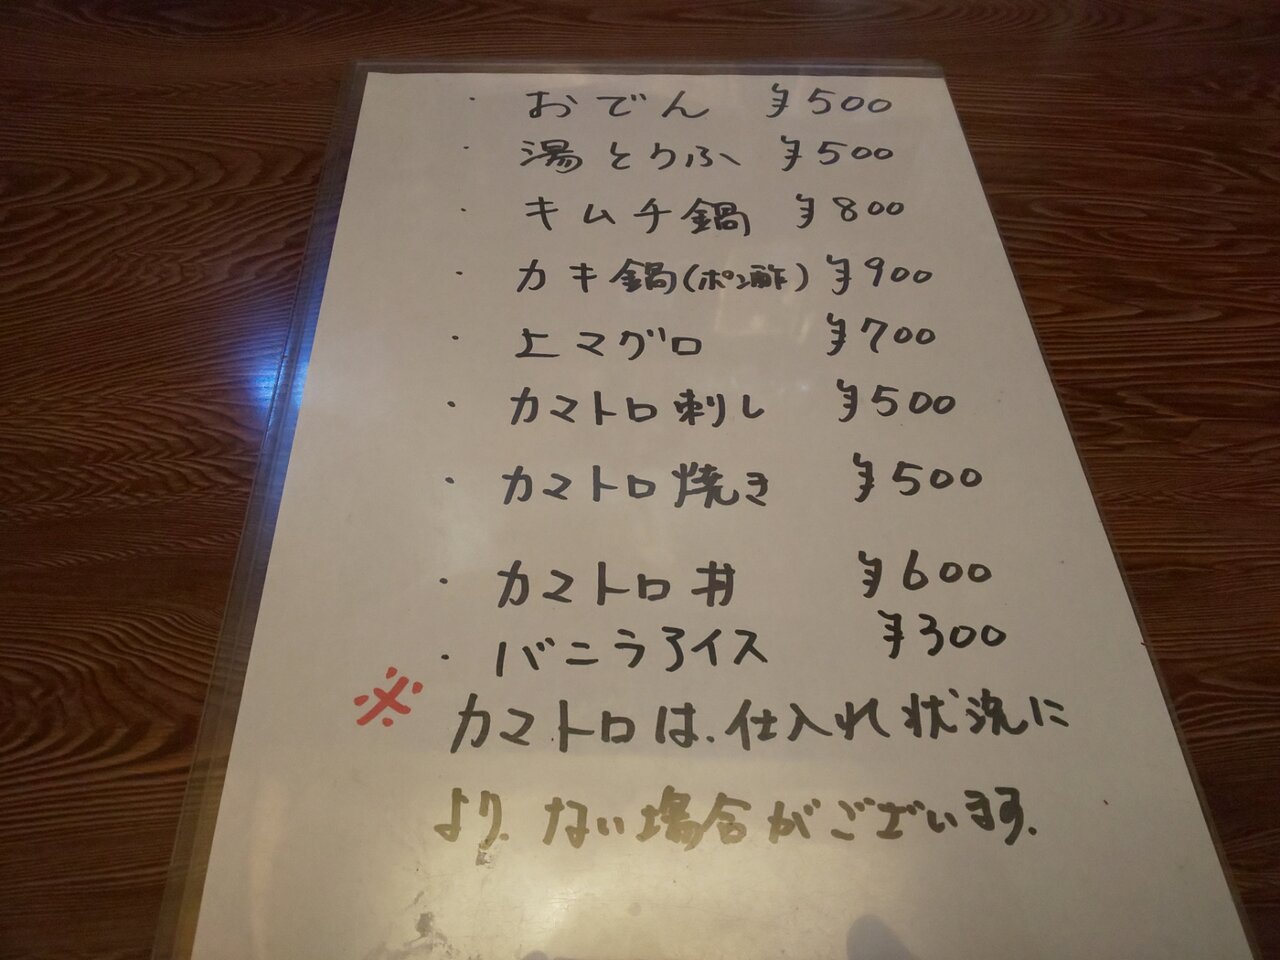 ・ おでん ¥500
・ 湯とうふ ¥500
・ キムチ鍋 ¥800
・ カキ鍋(ポン酢) ¥900
・ 上マグロ ¥700
・ カマトロ刺し ¥500
・ カマトロ焼き ¥500
・ カマトロ丼 ¥600
・ バニラアイス ¥300
※ カマトロは、仕入れ状況に
より、ない場合がございます。